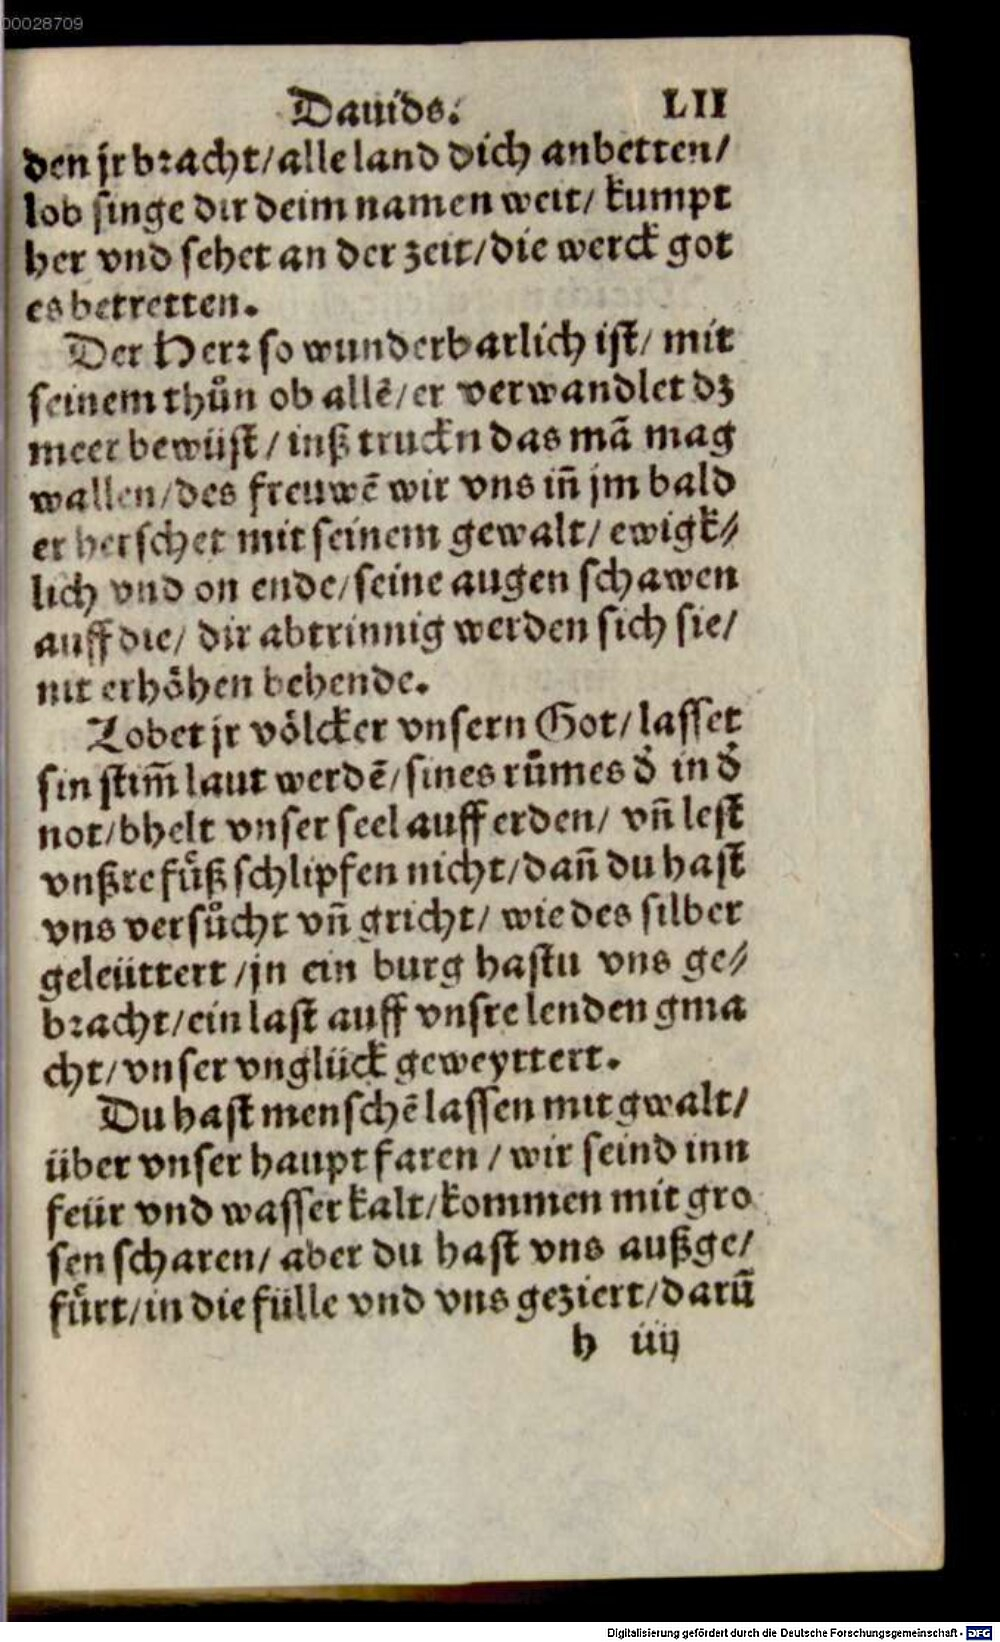 00028709
Dauids. LII
den jr bracht/alle land dich anbetten/
lob singe dir deim namen weit/ kumpt
her vnd sehet an der zeit/die werck got
es betretten.
Der Herr so wunderbarlich ist/ mit
seinem thůn ob allẽ/er verwandlet dz
meer bewüst/inß truckn das mã mag
wallen/des freuwẽ wir vns iñ jm bald
er herschet mit seinem gewalt/ ewigk⸗
lich vnd on ende/seine augen schawen
auff die/ dir abtrinnig werden sich sie/
nit erhöhen behende.
Lobet jr völcker vnsern Got/lasset
sin stim̃ laut werdẽ/sines růmes d̕ in d̕
not/bhelt vnser seel auff erden/ vñ lest
vnßre fůß schlipfen nicht/dañ du hast
vns versůcht vñ gricht/ wie des silber
geleüttert/jn ein burg hastu vns ge⸗
bracht/ein last auff vnsre lenden gma
cht/vnser vnglück geweyttert.
Du hast menschẽ lassen mit gwalt/
über vnser haupt faren/wir seind inn
feür vnd wasser kalt/kommen mit gro
sen scharen/ aber du hast vns außge/
fürt/in die fülle vnd vns geziert/darũ
h iiij
Digitalisierung gefördert durch die Deutsche Forschungsgemeinschaft - DFG